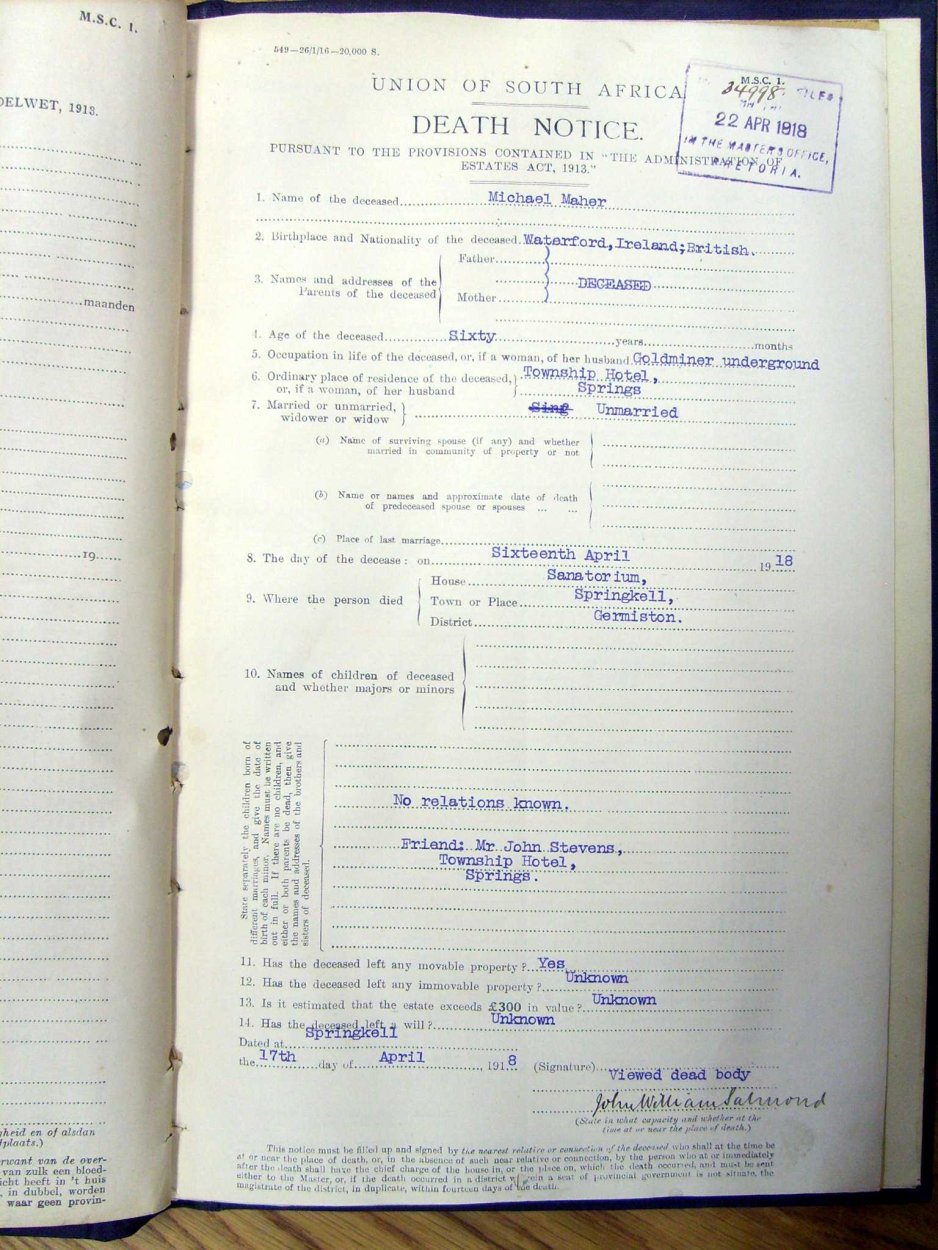 M.S.C. 1.
DELWET, 1913.
maanden
19
gheid en of alsdan
plaats.)
rwant van de over-
van zulk een bloed-
icht heeft in 't huis
, in dubbel, worden
waar geen provin-
549—26/1/16—20,000 S.
M.S.C. 1.
UNION OF SOUTH AFRICA
34998 FILED
22 APR 1918
IN THE MASTER'S OFFICE,
PRETORIA.
DEATH NOTICE.
PURSUANT TO THE PROVISIONS CONTAINED IN "THE ADMINISTRATION OF
ESTATES ACT, 1913."
1. Name of the deceased Michael Maher
2. Birthplace and Nationality of the deceased Waterford, Ireland; British.
Father
3. Names and addresses of the
Parents of the deceased DECEASED
Mother
4. Age of the deceased Sixty years months
5. Occupation in life of the deceased, or, if a woman, of her husband Goldminer underground
6. Ordinary place of residence of the deceased, Township Hotel,
or, if a woman, of her husband Springs
7. Married or unmarried, Sing Unmarried
widower or widow
(a) Name of surviving spouse (if any) and whether
married in community of property or not
(b) Name or names and approximate date of death
of predeceased spouse or spouses ... ...
(c) Place of last marriage
8. The day of the decease: on Sixteenth April 19 18
House Sanatorium,
9. Where the person died Town or Place Springkell,
District Germiston.
10. Names of children of deceased
and whether majors or minors
State separately the children born of
different marriages, and give the date of
birth of each minor. Names must be written
out in full. If there are no children, and
either or both parents be dead, then give
the names and addresses of the brothers and
sisters of deceased.
No relations known.
Friend: Mr John Stevens,
Township Hotel,
Springs.
11. Has the deceased left any movable property? Yes
12. Has the deceased left any immovable property? Unknown
13. Is it estimated that the estate exceeds £300 in value? Unknown
14. Has the deceased left a will? Unknown
Dated at Springkell
the 17th day of April 1918 (Signature)
Viewed dead body
John William Salmond
(State in what capacity and whether at the
time at or near the place of death.)
This notice must be filled up and signed by the nearest relative or connection of the deceased who shall at the time be
at or near the place of death, or, in the absence of such near relative or connection, by the person who at or immediately
after the death shall have the chief charge of the house in, or the place on, which the death occurred, and must be sent
either to the Master, or, if the death occurred in a district wherein a seat of provincial government is not situate, the
magistrate of the district, in duplicate, within fourteen days of the death.